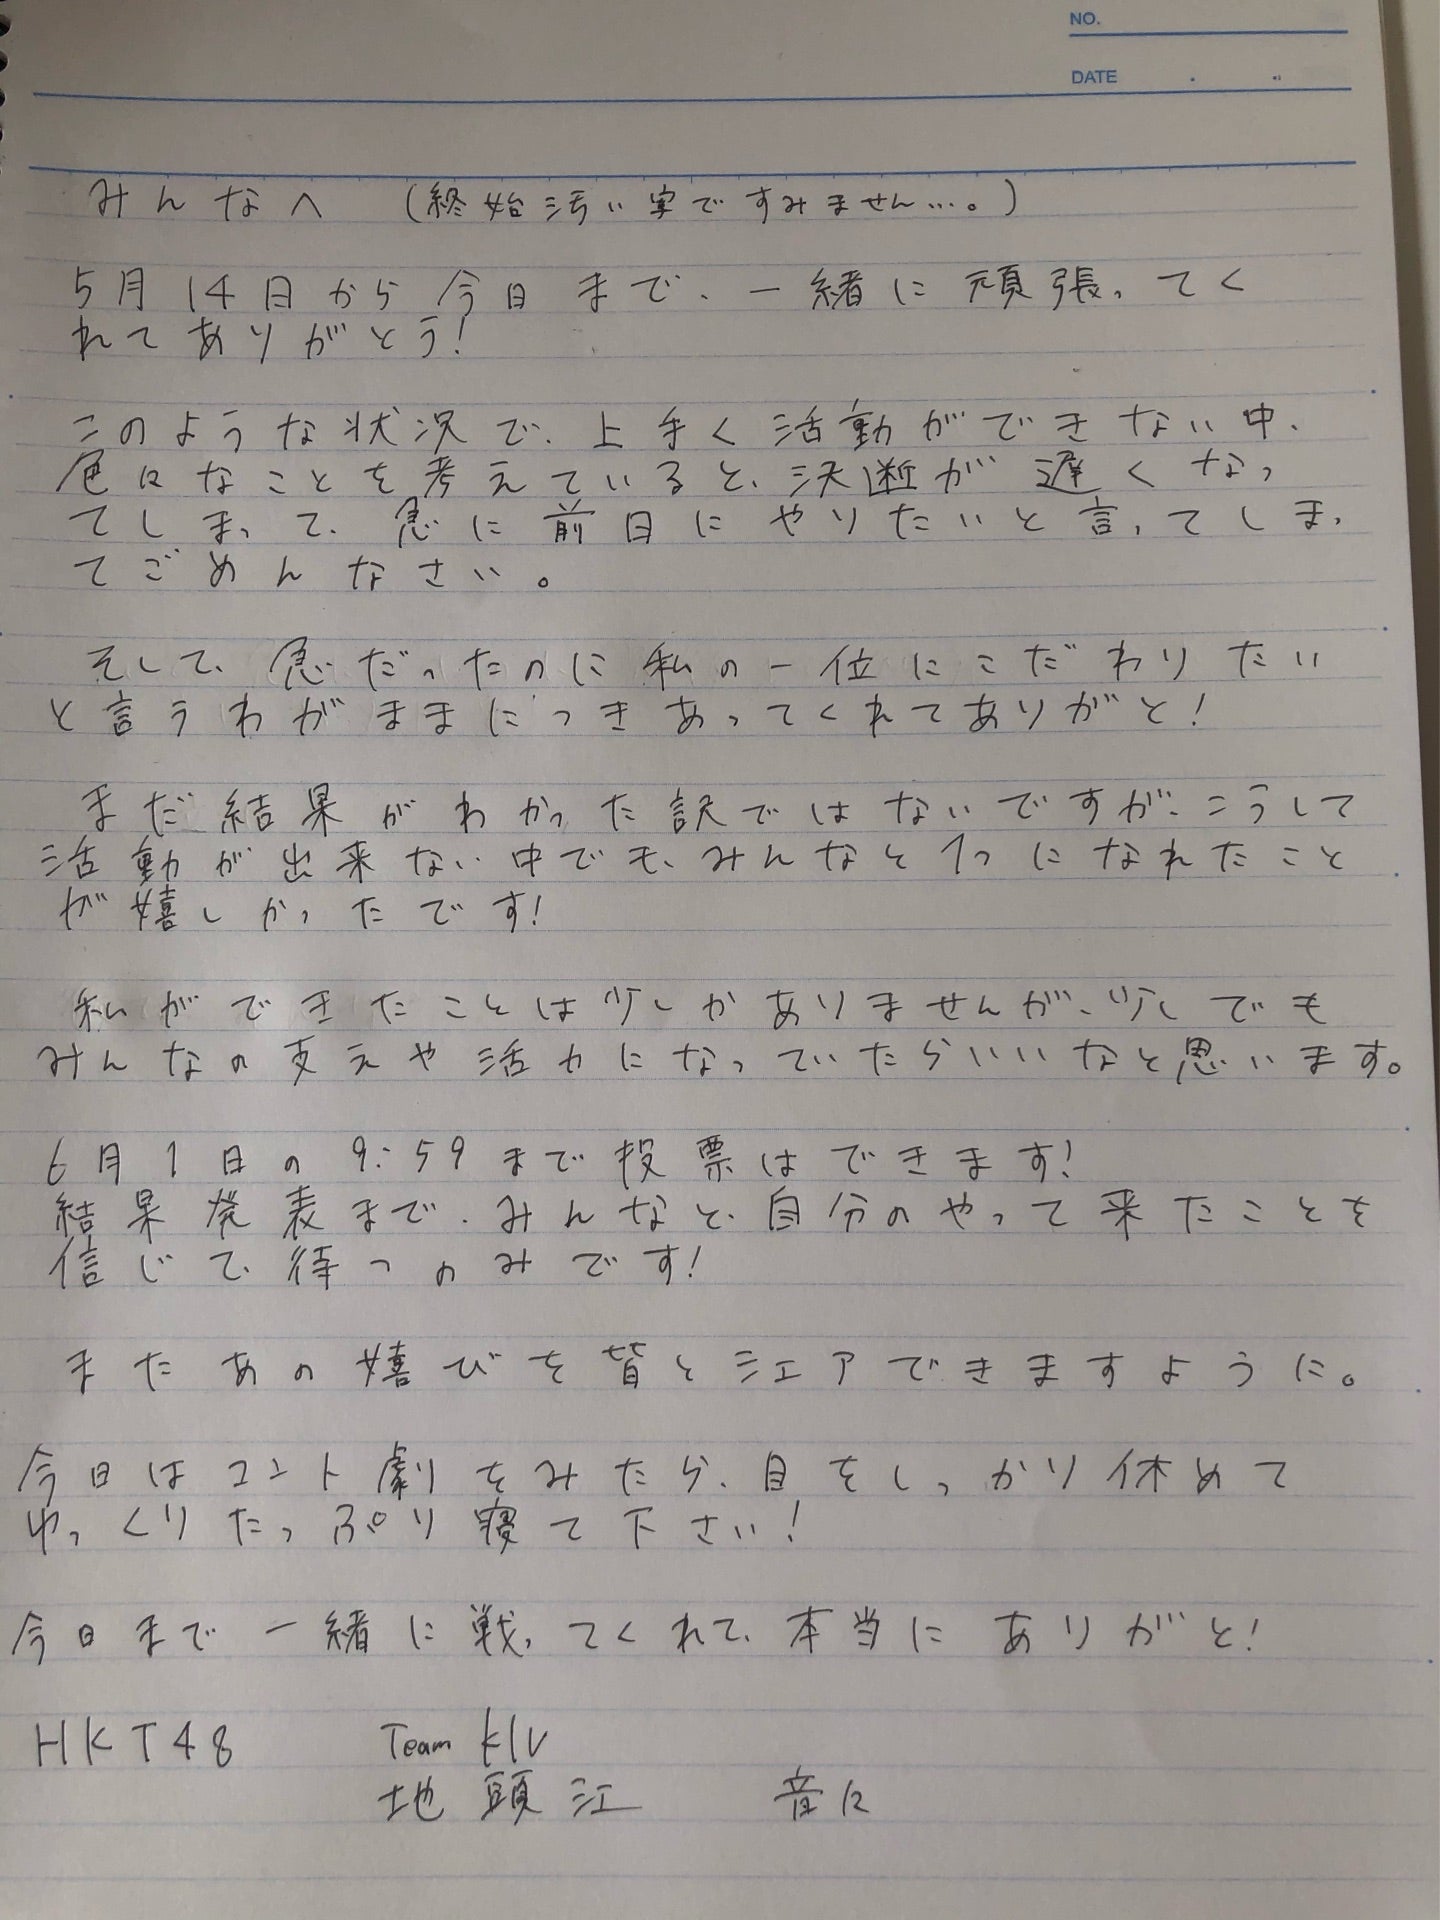 NO.
DATE
みんなへ (終始汚い字ですみません…。)
5月14日から今日まで、一緒に頑張ってく
れてありがとう!
このような状況で、上手く活動ができない中、
色々なことを考えていると、決断が遅くなっ
てしまって、急に前日にやりたいと言ってしまっ
てごめんなさい。
そして、急だったのに私の一位にこだわりたい
と言うわがままにつきあってくれてありがと!
まだ結果がわかった訳ではないですが、こうして
活動が出来ない中でも、みんなと1つになれたこと
が嬉しかったです!
私ができたことは少しかありませんが、少しでも
みんなの支えや活力になっていたらいいなと思います。
6月1日の9:59まで投票はできます!
結果発表まで、みんなと、自分のやって来たことを
信じて、待つのみです!
またあの嬉びを皆とシェアできますように。
今日はコント劇をみたら、目をしっかり休めて
ゆっくりたっぷり寝て下さい!
今日まで一緒に戦ってくれて、本当にありがと!
HKT48 Team KIV
地頭江 音々